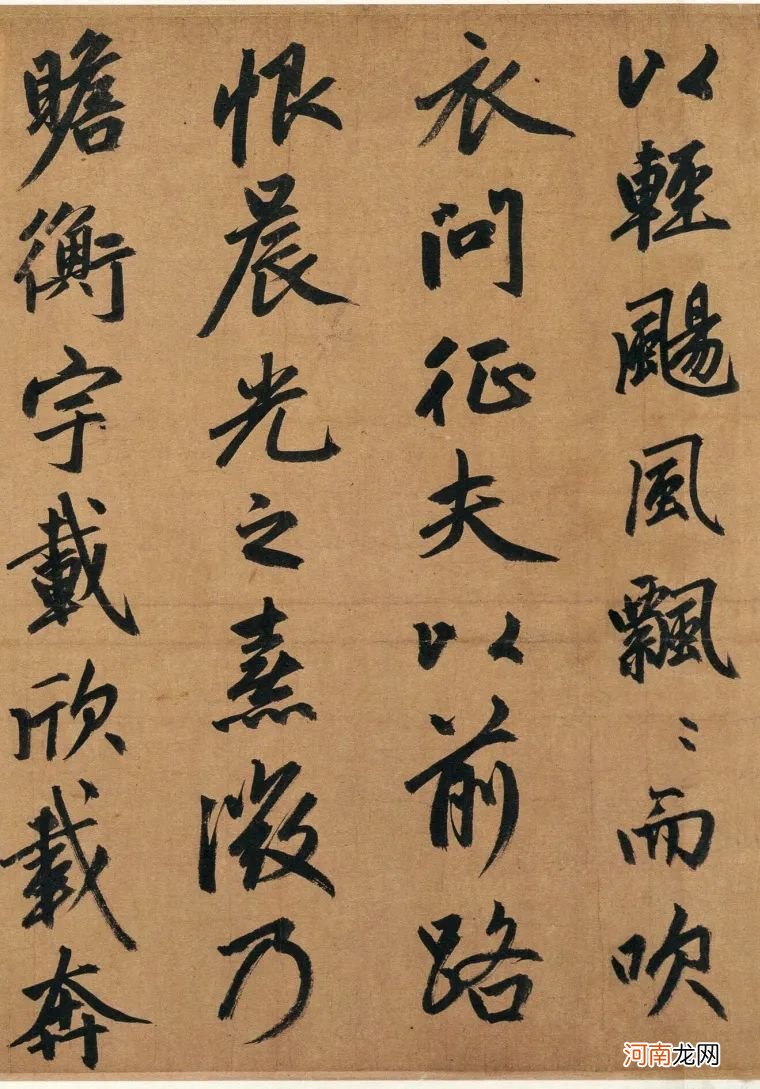 以輕颺風飄〻而吹
衣問征夫以前路
恨晨光之熹微乃
瞻衡宇載欣載奔
河南龙网